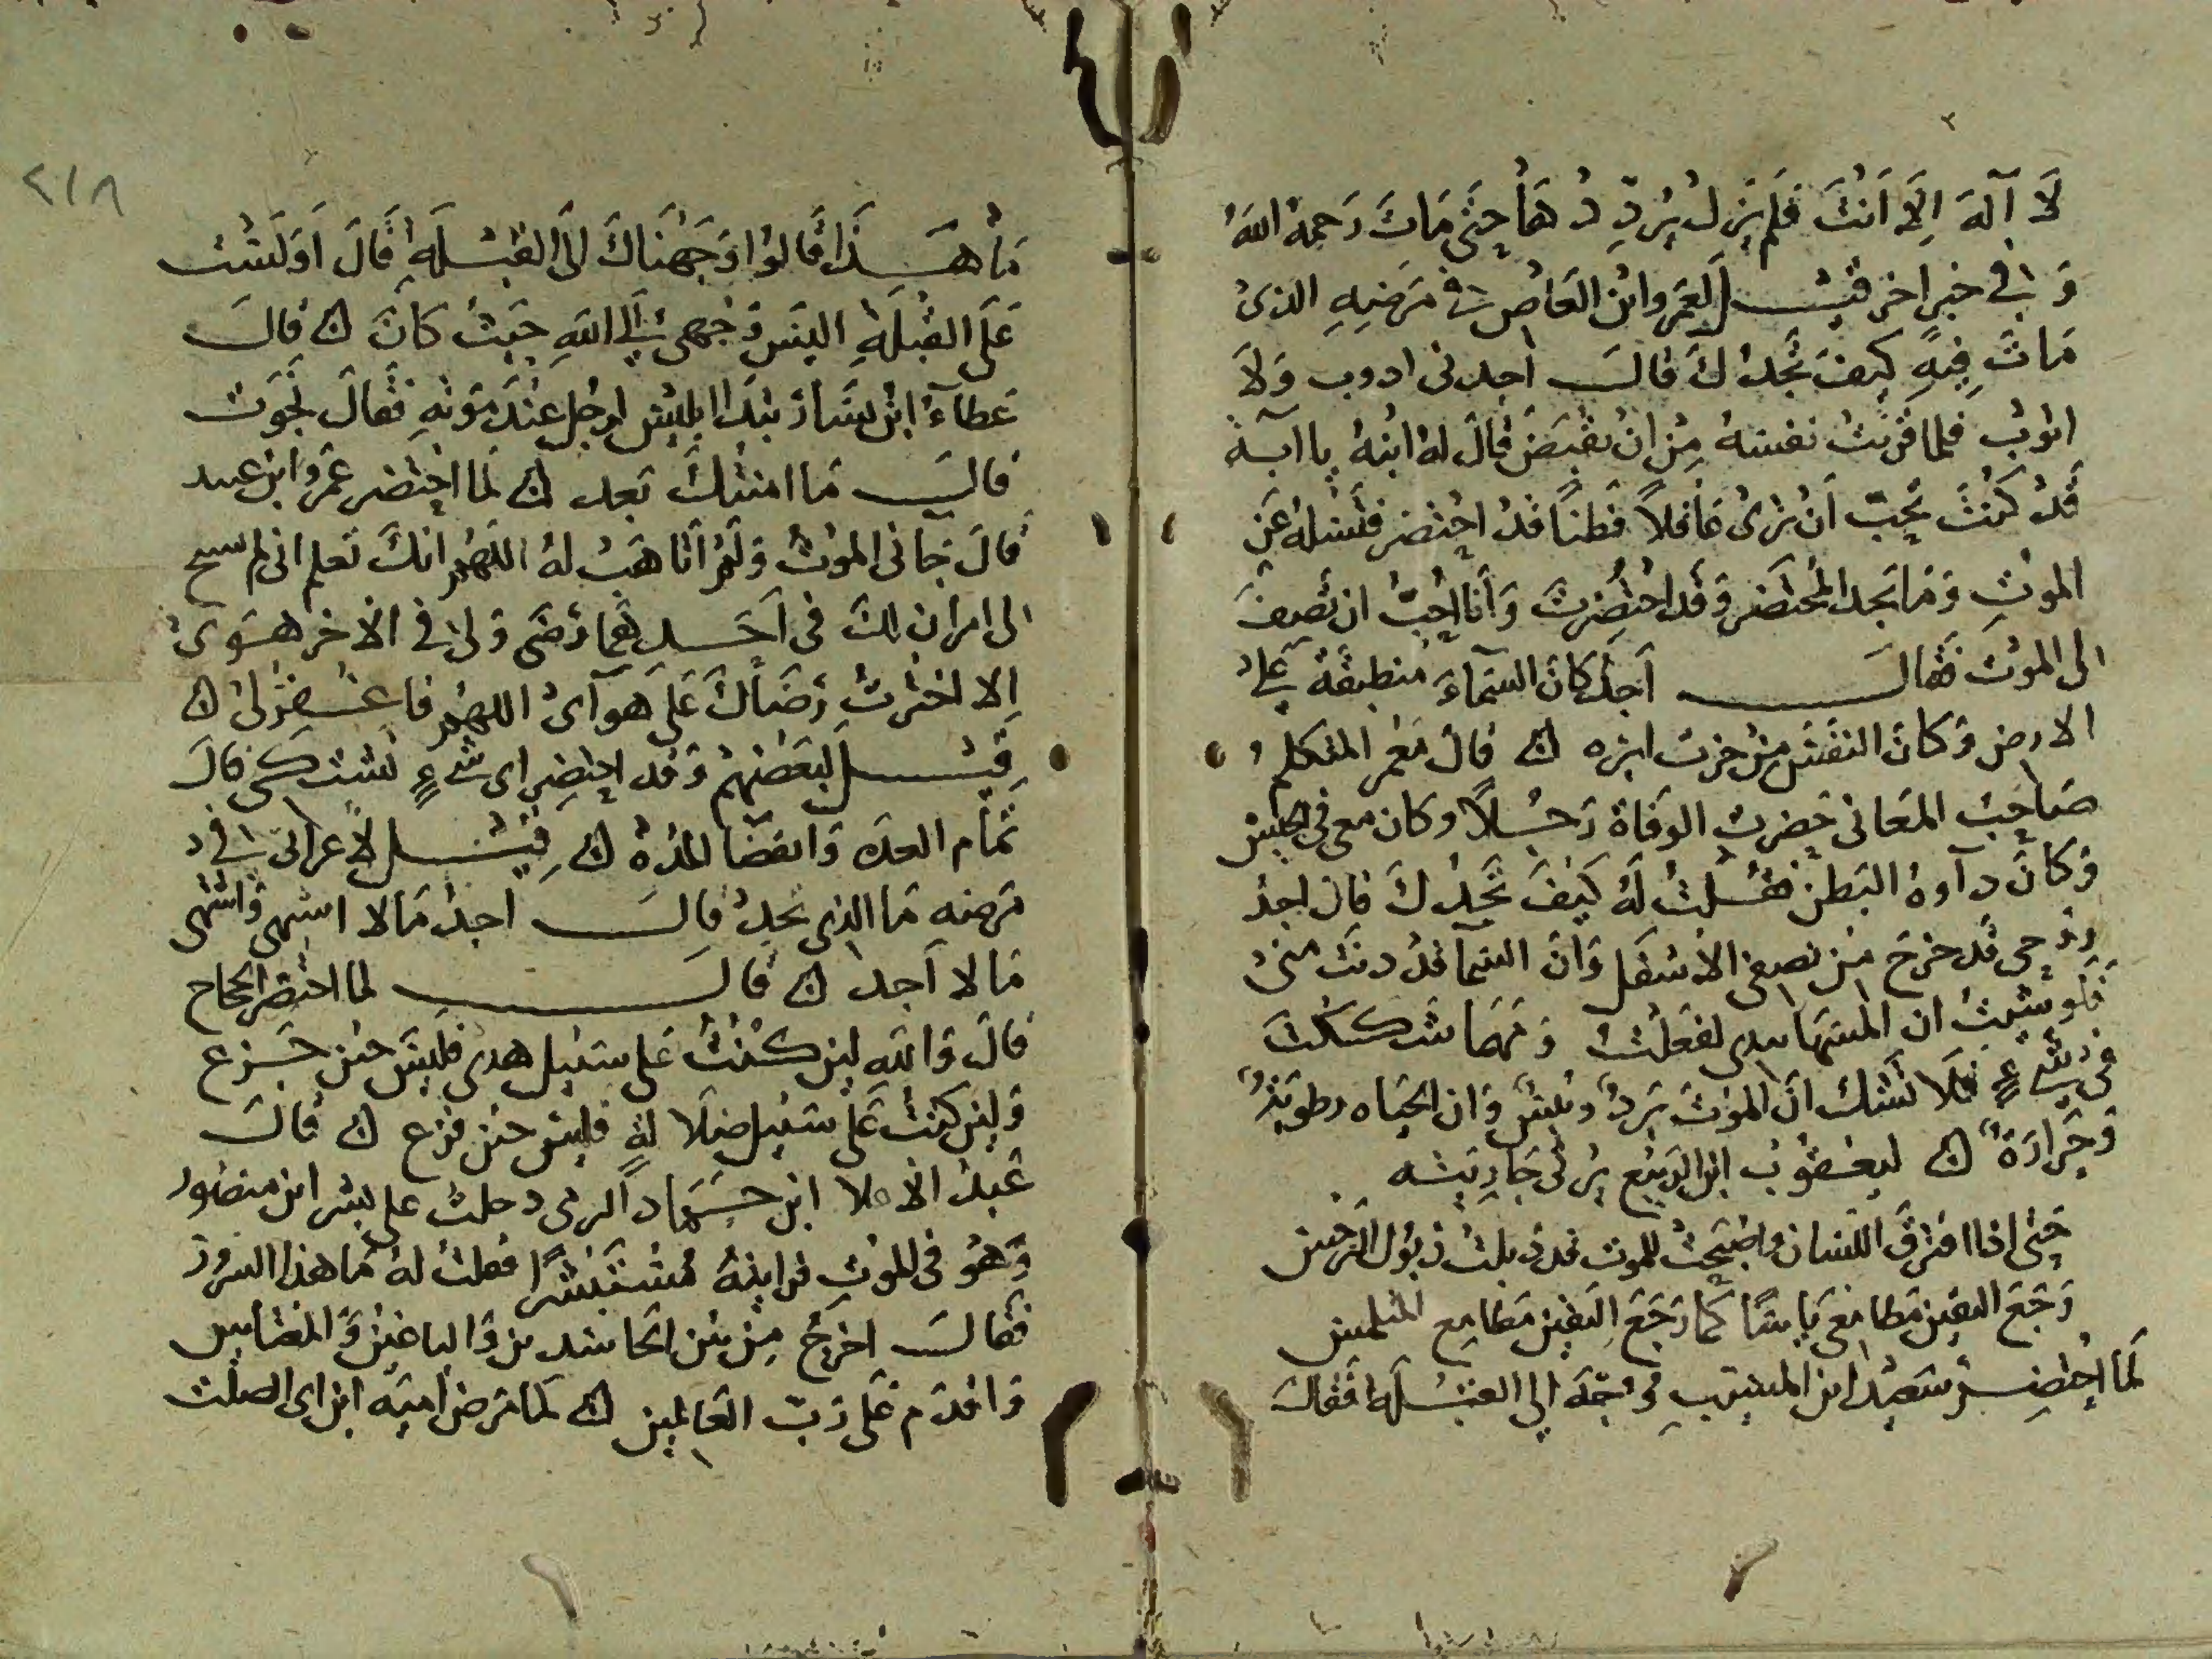 لَا آلَهَ اِلَّا اَنتَ فلم يزل يُردِّدُ هَا حتى مَاتَ رَحمهُ اللهُ
وَ في خبر اخر قيـــل لعَمرو ابن العَاص في مَرَضِهِ الذي
مَاتَ فِيهِ كيفَ تجدُكَ قالــ اجدنى ادوب وَلَا
اثوبُ فلما قربتْ نفسهُ مِن اَنْ تقبَضَ قالَ لهُ ابنُهُ يا ابه
قَدْ كنتَ تحِبّ اَنْ ترى عَاقلاً فَطناً قدْ احتضر فتسلهُ عَن
الموتِ وَمَا يجد المُحتَضر وَقد احتُضِرتَ وَاَنا احِبُّ ان تَصِفَ
لى الموتَ فقالــــ اَجدُ كانَ السَمآءَ منطبقة عَلى
الارض وَكانَ النفَسَ مِنْ خرت ابره ۞ قالَ مَعمر المتكلم
صَاحِبُ المَعَانى حَضرت الوَفَاة رَجــلاً وكان معى فى الحبْس
وَكانَ دآوهُ البَطن فقــلتُ لَهُ كيفَ تَجدُكَ قال اجدُ
روُحِى قَد خرجَ مِن نصفى الاسْفَل وَانَّ السَمآ قدْ دنَت منىْ
فَلو شيتُ ان المسَهَا بيدى لفَعَلتُ وَمَهمَا شَككتَ
فى شَىءٍ فَلَا تَشك انّ الموْتَ بَردٌ ويبْسٌ وَان الحَيَاه رطوبَةٌ
وَحَرارَةٌ ۞ ليعقوبَ ابن الربيْع يَرثى جَاريَته
حَتى اذا افترقَ اللسَان واصْبَحتْ للموت قد ذبلتْ ذبول النرجسِ
رَجَعَ اليقين مَطامعى يَاسًا كما رَجَعَ اليَقين مَطامِع المتلمس
لَمَا احتُضِــرَ سَعِيْد ابن المسَيّبِ وُجِّهَ الى القبْــلَه فَقالَ
مَا هَـــذَا قَالوُا وَجَهْنَاكَ الى القِبْــلَةِ قَالَ اَوَلَسْت
عَلَى القِبْلَةِ اليَسَ وَجْهى اِلى اللهِ حَيثُ كانَ ۞ قالــ
عَطآءُ ابْن يسَار تبَدَّا ابليْس لرجُل عِنْدَ مَوْتِهِ فَقَالَ نجَوتَ
قالــ مَا امنتُكَ بَعد ۞ لَمَا احتُضر عَمْرو ابن عبيد
قالَ جَآنى الموْتُ وَلَمْ اَتاهَبْ لهُ اللهُم انكَ تَعلم انى لم يسنح
لى امران لكَ فى اَحَـــدِهِمَا رَضَى وَلى فى الاخر هَوَىً
اِلا اخترتُ رَضَاكَ عَلى هَوآىَ اللهُم فاغــفرْ لى ۞
قِيْــــل لبَعْضِهمْ وَقد احتضِر اى شَىءٍ تشتــكى قالَ
تمَام العدَه وَانقضَا المُدَّه ۞ قِيْـــل لاعرابى فى
مَرَضه مَا الذى تجدُ قالَــ اجدُ مَالا اشتهى وَاشتَهى
مَا لا اَجد ۞ قالَـــــ لما احتضر الحجاج
قالَ وَاللهِ لين كنْتُ عَلى سَبيل هدى فليْسَ حين جَزع
وَلين كنتُ عَلى سَبيل ضلَالةٍ فليسَ حين فزع ۞ قالَ
عَبدُ الاعلا ابن حَــمَاد النرسى دخلتُ على بشر ابن منصُور
وَهُوَ فى الموْتِ فرايتهُ مُستَبْشرًا فقلتُ لهُ مَا هذا السرور
فقالــ اخرجُ مِنْ بَين الحَاسدين وَالباغين وَالمغتابين
وَاقدَم عَلى رَبّ العَالمين ۞ لَمَا مَرضَ اُميّه ابن ابى الصلت
٢١٨